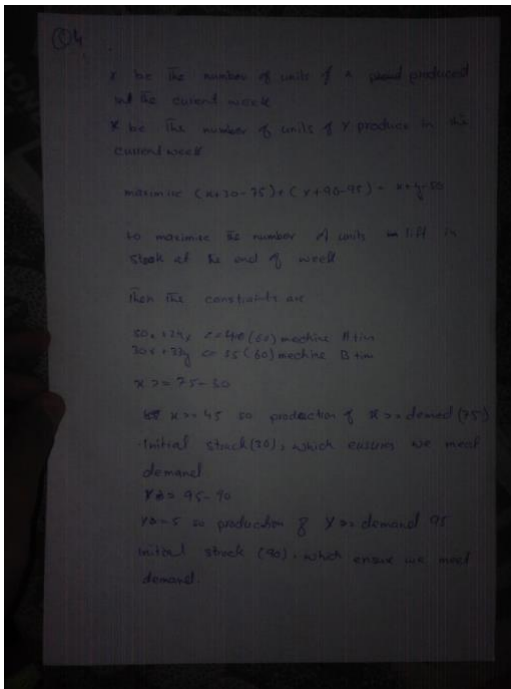 Q4
x be the number of units of x produced
in the current week
Y be the number of units of Y produce in the
current week
maximise (x+30-75)+(y+90-95) = x+y-50
to maximise the number of units left in
stock at the end of week
Then the constraints are
50x+24y <=40(60) machine A tim
30x+33y <= 35(60) machine B tim
x >= 75-30
x >= 45 so production of x >= demand (75)
- initial stock (30), which ensures we meet
demand
Y >= 95-90
Y >= 5 so production of Y >= demand 95
initial stock (90), which ensure we meet
demand